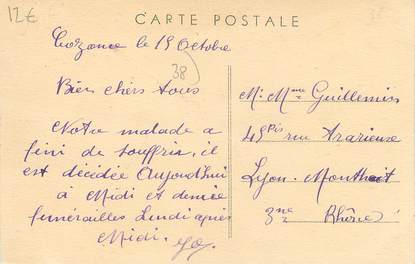 12€
CARTE POSTALE
le 15 Octobre
38
Bien chers tous
Notre malade a
fini de souffrir, il
est décédée Aujourd'hui
à Midi et demie
funérailles Lundi après
Midi.
Mr Mme Guillemin
rue
Lyon. Montchat
3me Rhône